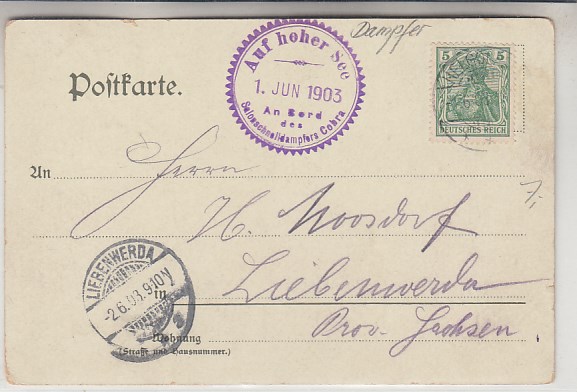 Dampfer
Postkarte.
Auf hoher See
1. JUN 1903
An Bord
des
Salonschnelldampfers Cobra
5 5
DEUTSCHES REICH
An Herrn
H. Moosdorf
LIEBENWERDA
2.6.03.9-10V
in Liebenwerda
Prov. Sachsen
Wohnung
(Straße und Hausnummer.)
7,-